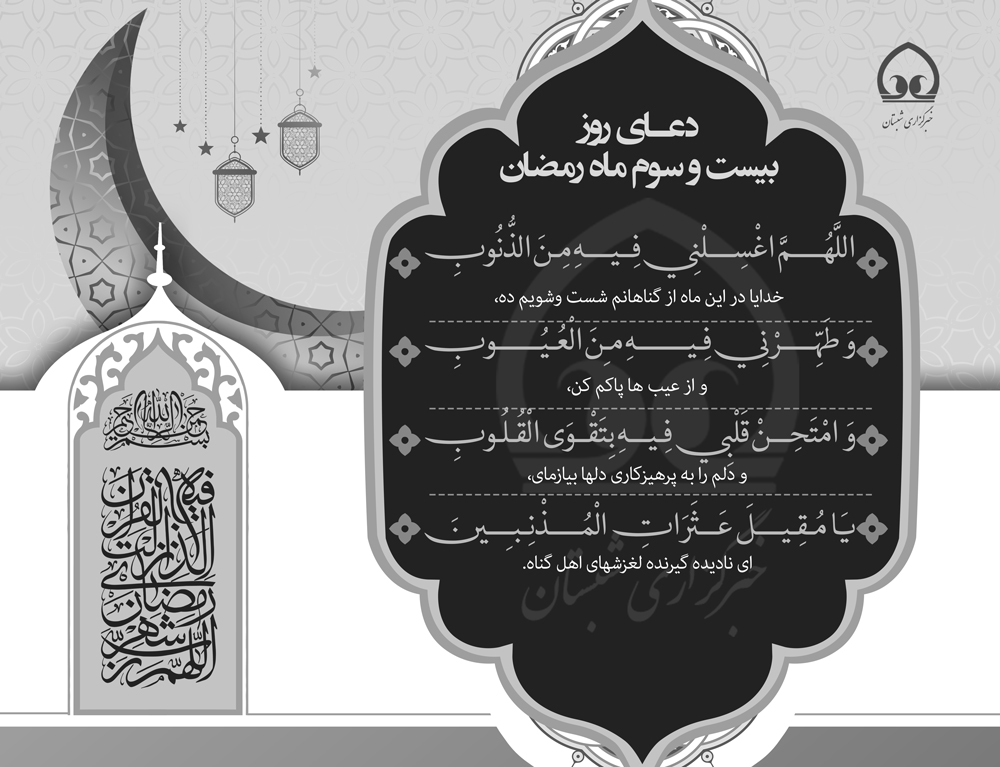 خبرگزاری شبستان
دعـای روز
بیست و سوم ماه رمضان
اللَّهُـمَّ اغْسِـلْنِي فِـيـهِ مِـنَ الذُّنُوبِ
خدایا در این ماه از گناهانم شست وشویم ده،
وَ طَهِّـرْنِي فِـيـهِ مِـنَ الْعُـيُـوبِ
و از عیب ها پاکم کن،
وَ امْتَحِـنْ قَلْبِي فِـيـهِ بِتَقْـوَى الْقُـلُـوبِ
و دَلم را به پرهیزکاری دلها بیازمای،
يَـا مُـقِيـلَ عَـثَـرَاتِ الْمُـذْنِـبِـيـنَ
ای نادیده گیرنده لغزشهای اهل گناه.
خبرگزاری شبستان
بسم الله الرحمن الرحیم
اللّهمّ ربّ شهر رمضان الذی انزلت فیه القرآن